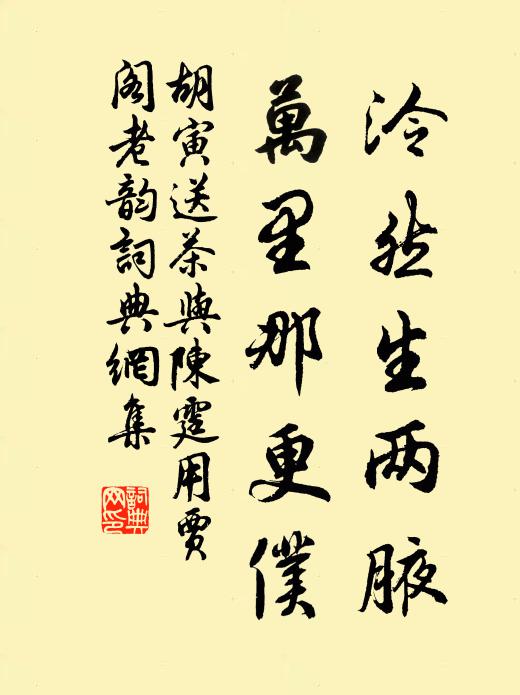 泠然生两腋
萬里那更僕
胡寅送茶與陳霆用賈
阁老韵詞典網集
詞典網印